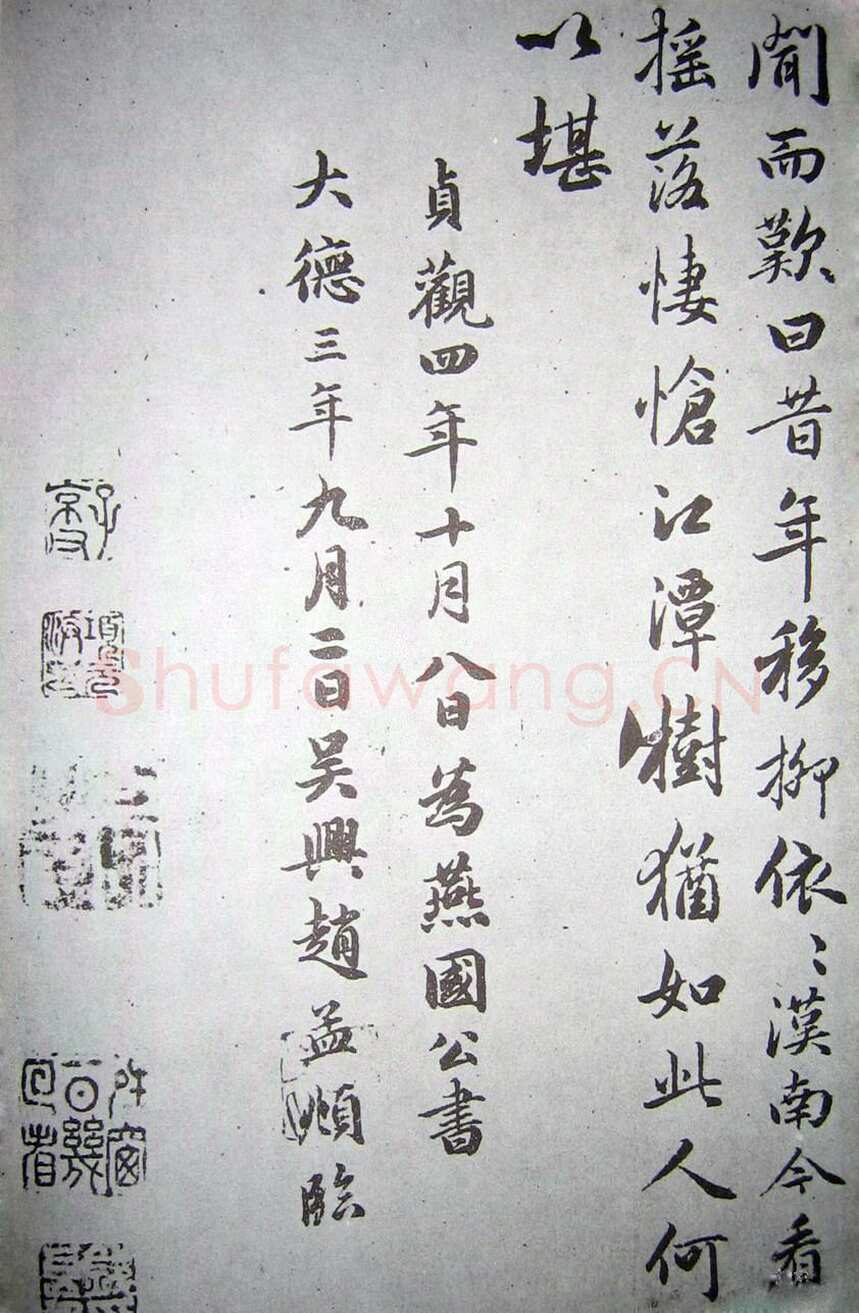 聞而歎曰昔年移柳依〻漢南今看
摇落悽愴江潭樹猶如此人何
以堪
貞觀四年十月八日為燕國公書
大德三年九月二日吳興趙孟頫臨
Shufawang.CN